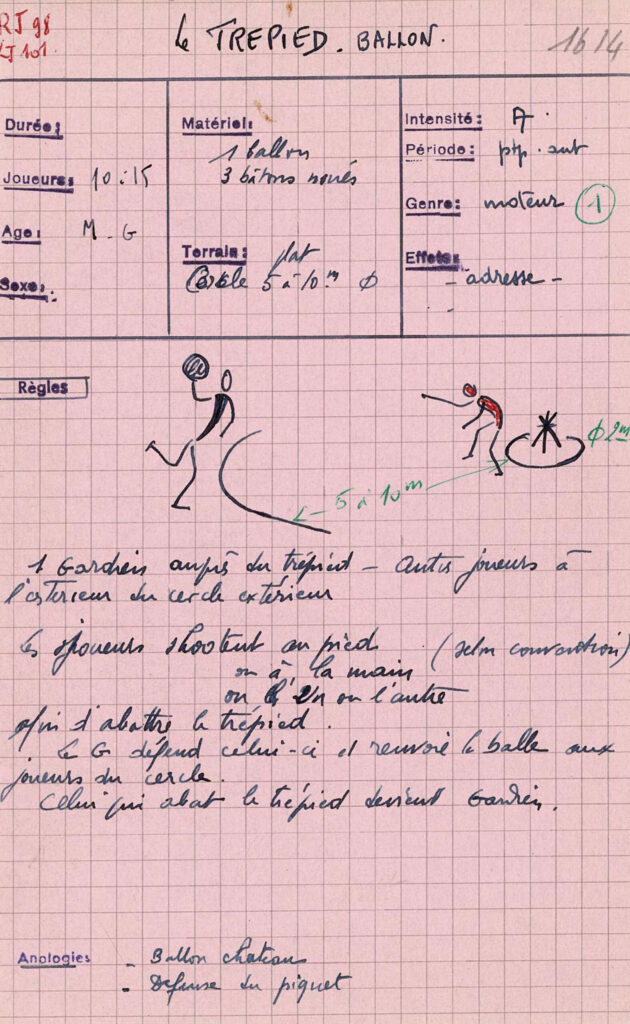 RJ 98
LJ 101
Le TREPIED. BALLON.
16/4
Durée:
Joueurs: 10 à 15
Age: M - G
Sexe:
Matériel:
1 ballon
3 bâtons noués
Terrain: plat
Cercle 5 à 10 m Ø
Intensité: A.
Période: ptp. aut
Genre: moteur 1
Effets:
- adresse -
-
Règles
Ø 2 m
5 à 10 m
1 Gardien auprès du trépied - Autres joueurs à
l'extérieur du cercle extérieur
Les joueurs shootent au pied (selon convention)
ou à la main
ou l'un ou l'autre
afin d'abattre le trépied.
Le G défend celui-ci et renvoie la balle aux
joueurs du cercle.
Celui qui abat le trépied devient Gardien.
Analogies
- Ballon chateau
- Défense du piquet